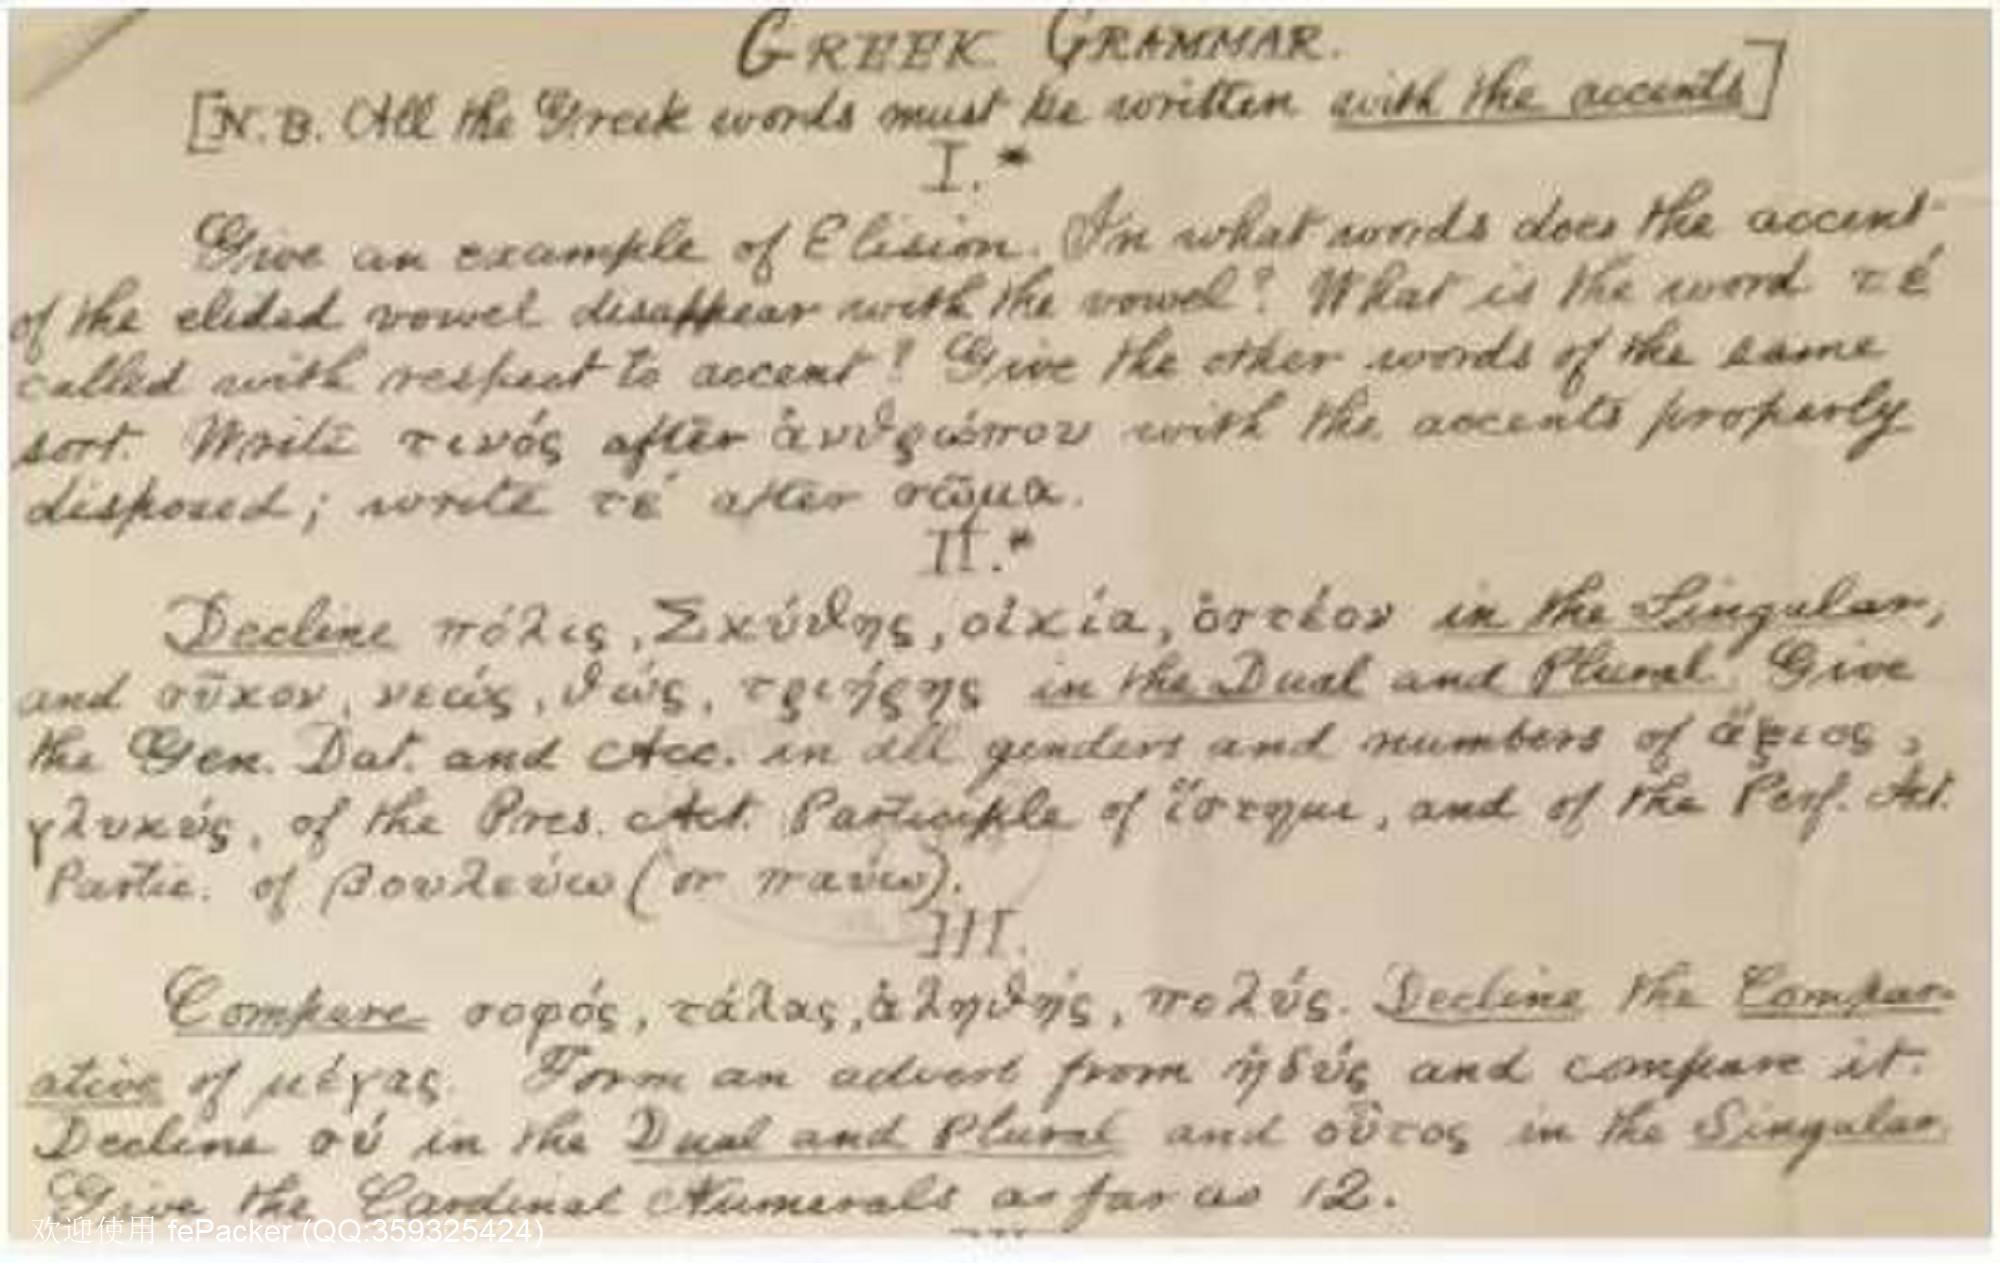 GREEK GRAMMAR.
[N.B. All the Greek words must be written with the accents]
I.*
Give an example of Elision. In what words does the accent
of the elided vowel disappear with the vowel? What is the word τέ
called with respect to accent? Give the other words of the same
sort. Write τινός after ἀνθρώπου with the accents properly
disposed; write τέ after σῶμα.
II.*
Decline πόλις, Σκύθης, οἰκία, ὀστέον in the Singular,
and σῦκον, νεώς, θώς, τριήρης in the Dual and Plural. Give
the Gen. Dat. and Acc. in all genders and numbers of ἄξιος,
γλυκύς, of the Pres. Act. Participle of ἵστημι, and of the Perf. Act.
Partic. of βουλεύω (or παύω).
III.
Compare σοφός, τάλας, ἀληθής, πολύς. Decline the Compar-
ative of μέγας. Form an advert from ἡδύς and compare it.
Decline σύ in the Dual and Plural and οὗτος in the Singular.
Give the Cardinal Numerals as far as 12.
欢迎使用 fePacker (QQ:359325424)